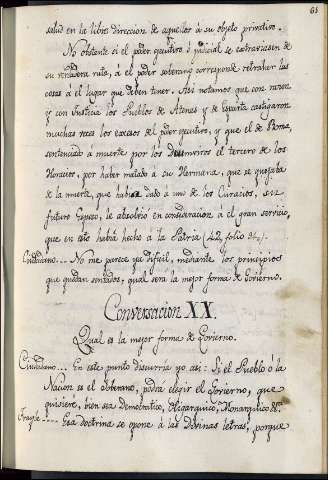 61
salud en la libre direccion de aquellos à su objeto primitivo.
No obstante si el poder egecutivo ó judicial se extraviasen de
su verdadera ruta, á el poder soberano corresponde retraher las
cosas á el lugar que deben tener. Asi notamos que con razon
y con justicia los Pueblos de Atenas y de Esparta castigaron
muchas veces los excesos del poder egecutivo, y que el de Roma,
sentenciado á muerte por los duumviros el tercero de los
Horacios, por haber matado á su Hermana, que se quejaba
de la muerte, que había dado à uno de los Curacios, su
futuro Esposo, le absolvió en consideracion á el gran servicio,
que en esto había hecho á la Patria (42, folio
Ciudadano... No me parece ya dificil, mediante los principios
que quedan sentados, qual sera la mejor forma de Govierno.
Conversacion XX.
Qual es la mejor forma de Govierno.
Ciudadano... En este punto discurria yo asi: Si el Pueblo ó la
Nacion es el soberano, podrá elegir el Govierno, que
quisiere, bien sea Democratico, Oligarquico, Monarquico &a.
Frayle ---- Esa doctrina se opone à las Divinas letras, porque